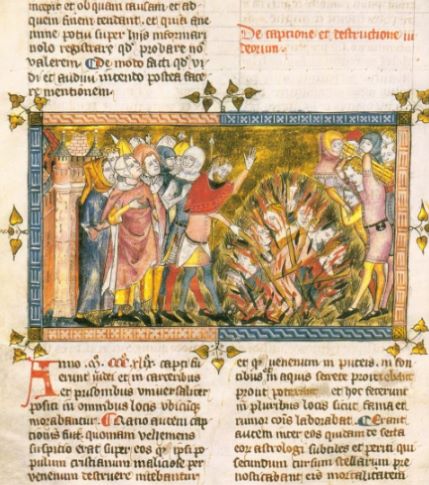 incepit et ob quam causam et ad
quem finem tendant, et qua
mine potui super hiis informari
nolo registrare qd probare no
valerem. De modo facti qd vi
di et audivi intendo postea face
re mentionem.
De captione et destructione iu
deorum.
Anno .M. CCC. xlix. capti fu
erunt iudei et in carceribus
et prisonibus universaliter
positi in omnibus locis ubicumq
morabantur. Ratio autem cap
tionis fuit, quoniam vehemens
suspicio erat super eos qd ipsi po
pulum cristianum maliciose per
venenum destruere nitebantur
et qd venenum in puteis, in fon
tibus et in aquis secrete proiciebant
prout poterant et hoc fecerunt
in pluribus locis sicut fama et
rumor laborabat. Erant
autem inter eos certa
astrologi subtiles et periti qui
secundum cursum stellarum pre
nosticabant eis mortalitatem